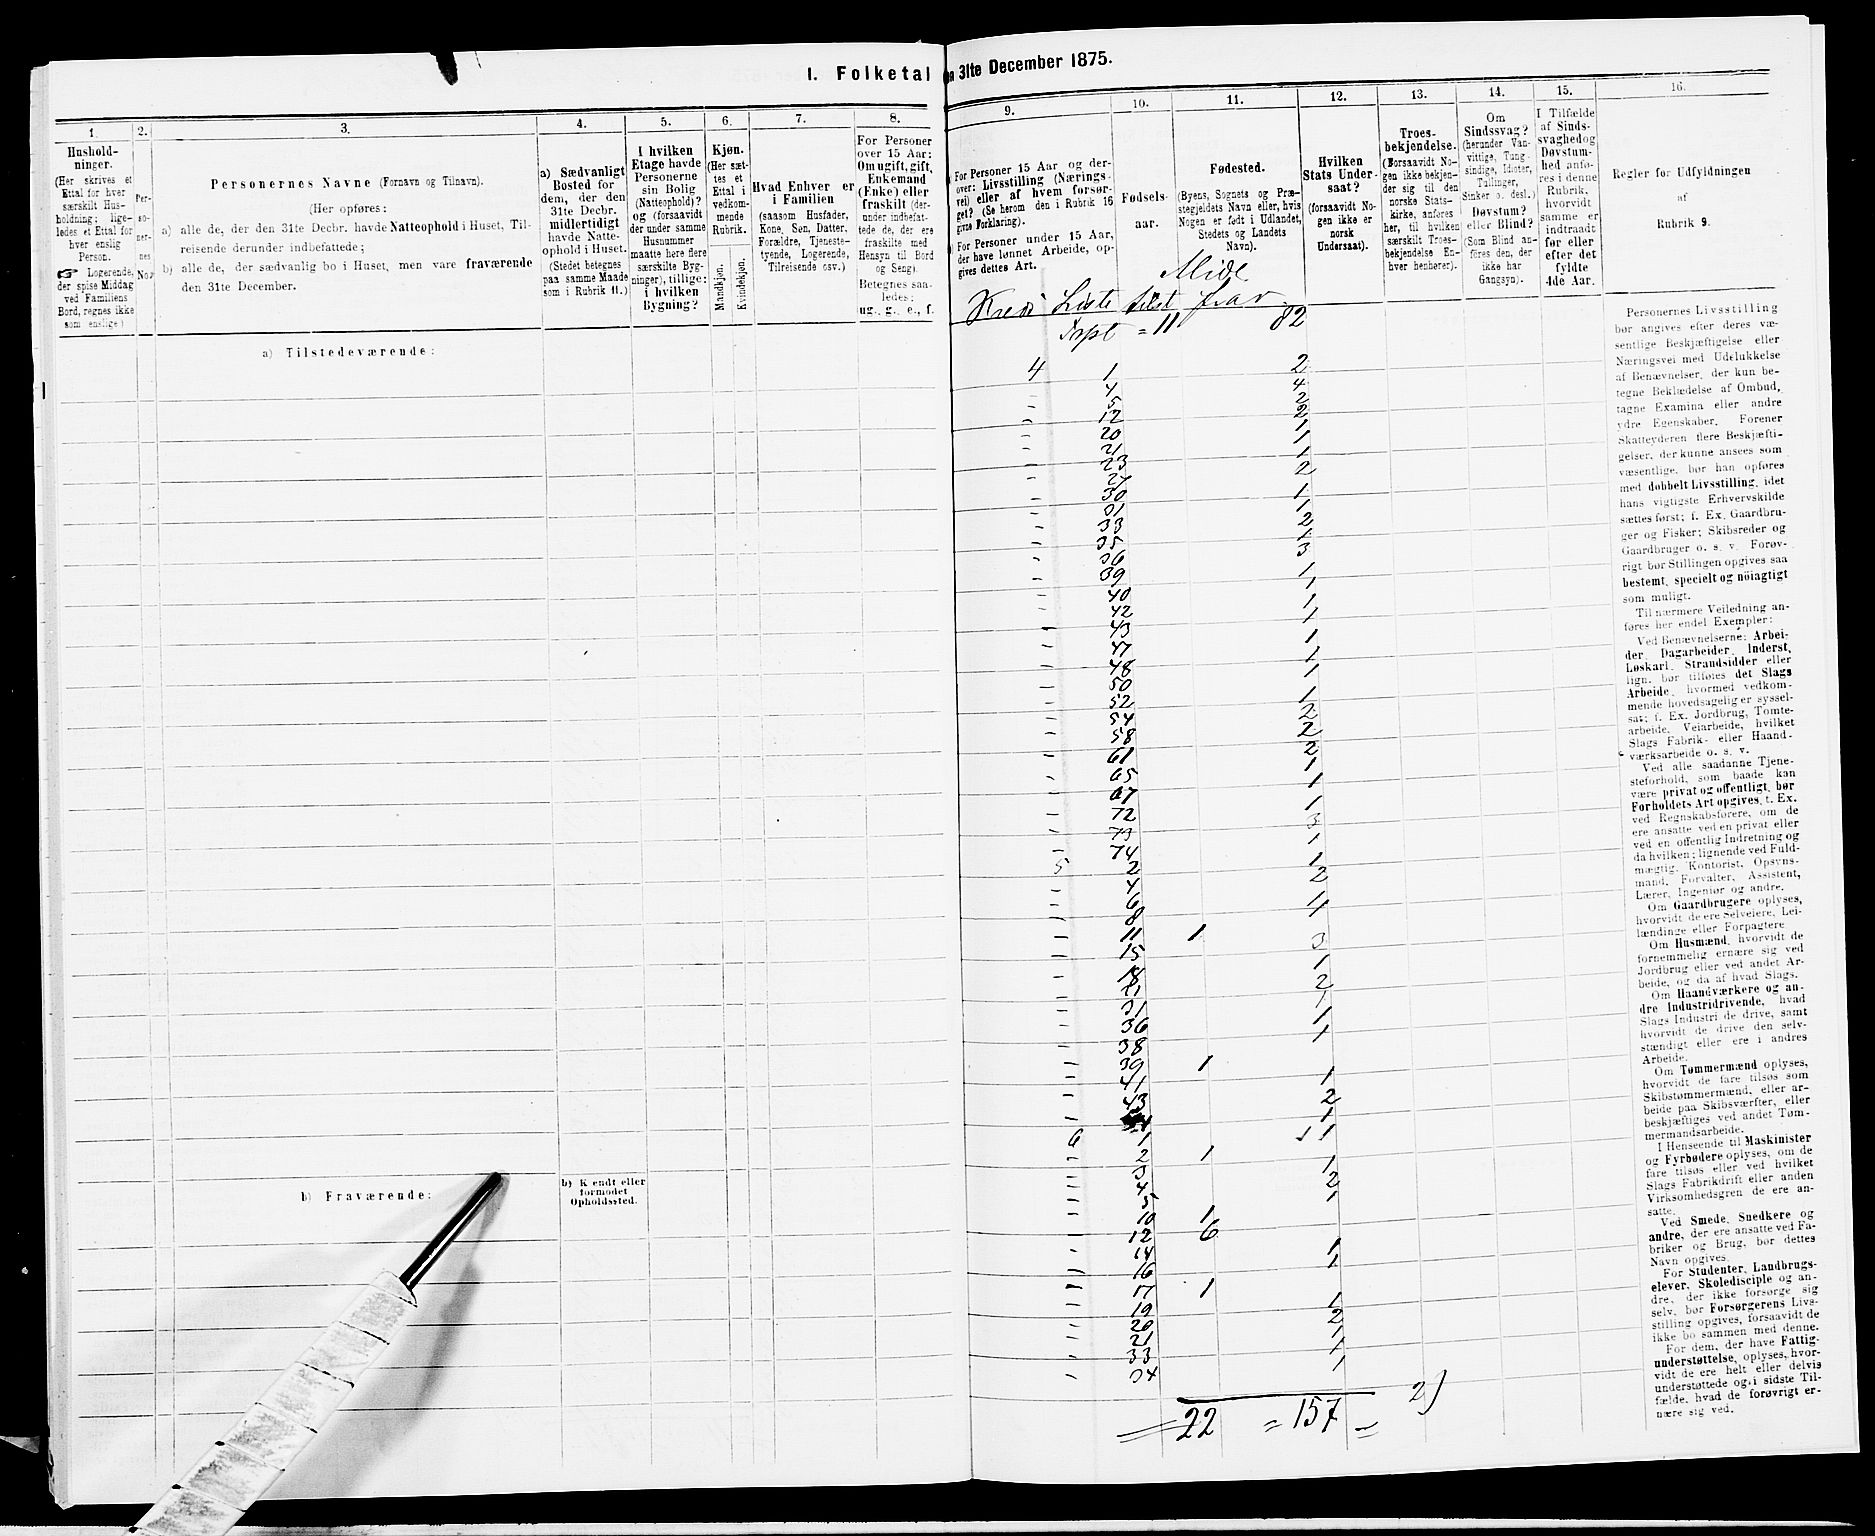 I. Folketal
31te December 1875.
1.
2.
3.
4.
5.
6.
7.
8.
9.
10.
11.
12.
13.
14.
15.
16.
Hushold-
ninger.
(Her skrives et
Ettal for hver
særskilt Hus-
holdning; lige-
ledes et Ettal for
hver enslig
Person.
☞ Logerende,
der spise Middag
ved Familiens
Bord, regnes ikke
som enslige.)
Per-
so-
ner-
nes
No.
Personernes Navne (Fornavn og Tilnavn).
(Her opføres:
a) alle de, der den 31te Decbr. havde Natteophold i Huset, Til-
reisende derunder indbefattede;
b) alle de, der sædvanlig bo i Huset, men vare fraværende
den 31te December.
a) Sædvanligt
Bosted for
dem, der den
31te Decbr.
midlertidigt
havde Natte-
ophold i Huset.
(Stedet betegnes
paa samme Maade
som i Rubrik 11.)
I hvilken
Etage havde
Personerne
sin Bolig
(Natteophold)?
og (forsaavidt
der under samme
Husnummer
maatte høre flere
særskilte Byg-
ninger), tillige:
i hvilken
Bygning?
Kjøn.
(Her sæt-
tes et
Ettal i
vedkom-
mende
Rubrik.
Mandkjøn.
Kvindekjøn.
Hvad Enhver er
i Familien
(saasom Husfader,
Kone, Søn, Datter,
Forældre, Tjeneste-
tyende, Logerende,
Tilreisende osv.)
For Personer
over 15 Aar:
Om ugift, gift,
Enkemand
(Enke) eller
fraskilt (der-
under indbefat-
tede de, der ere
fraskilte med
Hensyn til Bord
og Seng).
Betegnes saa-
ledes:
ug., g., e., f.
For Personer 15 Aar og der-
over: Livsstilling (Nærings-
vei) eller af hvem forsør-
get? (Se herom den i Rubrik 16
givne Forklaring).
For Personer under 15 Aar,
der have lønnet Arbeide, op-
gives dettes Art.
Fødsels-
aar.
Fødested.
(Byens, Sognets og Præ-
stegjeldets Navn eller, hvis
Nogen er født i Udlandet,
Stedets og Landets
Navn).
Hvilken
Stats Under-
saat?
(forsaavidt No-
gen ikke er
norsk
Undersaat).
Troes-
bekjendelse.
(Forsaavidt No-
gen ikke bekjen-
der sig til den
norske Stats-
kirke, anføres
her, til hvilken
særskilt Troes-
bekjendelse En-
hver henhører).
Om
Sindssvag?
(herunder Van-
vittige, Tung-
sindige, Idioter,
Tullinger,
Sinker o. desl.)
Døvstum?
eller Blind?
(Som Blind an-
føres den, der
ikke har
Gangsyn).
I Tilfælde
af Sinds-
svaghed og
Døvstum-
hed anfø-
res i denne
Rubrik,
hvorvidt
samme er
indtraadt
før eller
efter det
fyldte
4de Aar.
Regler for Udfyldningen
af
Rubrik 9.
Kreds Liste tilst frav.
= 11 82
a) Tilstedeværende:
4 1 2
4 4
5 2
12 2
20 1
21 1
23 1
27 2
30 1
31 1
33 2
35 1
36 3
39 1
40 1
42 1
43 1
47 1
48 1
50 1
52 1
54 2
58 2
61 2
65 1
67 1
72 1
73 3
74 1
5 2 1
4 2
6 1
8 1
11 1
15 3
18 1
21 2
31 1
36 1
38 1
39 1
41 1
43 2
1
6 1 1
2 1
3 1
4 2
5 1
10 1
12 6
14 1
16 1
17 1
19 1
20 2
21 1
33 1
34 1
22 = 157 = 2)
b) Fraværende:
b) Kjendt eller
formodet
Opholdssted.
Personernes Livsstilling
bør angives efter deres væ-
sentlige Beskjæftigelse eller
Næringsvei med Udelukkelse
af Benævnelser, der kun be-
tegne Beklædelse af Ombud,
tagne Examina eller andre
ydre Egenskaber. Forener
Skatteyderen flere Beskjæfti-
gelser, der kunne ansees som
væsentlige, bør han opføres
med dobbelt Livsstilling, idet
hans vigtigste Erhvervskilde
sættes først; f. Ex. Gaardbru-
ger og Fisker; Skibsreder og
Gaardbruger o. s. v. Forøv-
rigt bør Stillingen opgives saa
bestemt, specielt og nöiagtigt
som muligt.
Til nærmere Veiledning an-
føres her endel Exempler:
Ved Benævnelserne: Arbei-
der, Dagarbeider, Inderst,
Løskarl, Strandsidder eller
lign. bør tilføies det Slags
Arbeide, hvormed vedkom-
mende hovedsagelig er syssel-
sat; f. Ex. Jordbrug, Tomte-
arbeide, Veiarbeide, hvilket
Slags Fabrik- eller Haand-
værksarbeide o. s. v.
Ved alle saadanne Tjene-
steforhold, som baade kan
være privat og offentligt, bør
Forholdets Art opgives, f. Ex.
ved Regnskabsførere, om de
ere ansatte ved en privat eller
ved en offentlig Indretning og
da hvilken; lignende ved Fuld-
mægtig, Kontorist, Opsyns-
mand, Forvalter, Assistent,
Lærer, Ingeniør og andre.
Om Gaardbrugere oplyses,
hvorvidt de ere Selveiere, Lei-
lændinge eller Forpagtere
Om Husmænd, hvorvidt de
fornemmelig ernære sig ved
Jordbrug eller ved andet Ar-
beide, og da af hvad Slags.
Om Haandværkere og an-
dre Industridrivende, hvad
Slags Industri de drive, samt
hvorvidt de drive den selv-
stændigt eller ere i andres
Arbeide.
Om Tømmermænd oplyses,
hvorvidt de fare tilsøs som
Skibstømmermænd, eller ar-
beide paa Skibsværfter, eller
beskjæftiges ved andet Tøm-
mermandsarbeide.
I Henseende til Maskinister
og Fyrbødere oplyses, om de
fare tilsøs eller ved hvilket
Slags Fabrikdrift eller anden
Virksomhedsgren de ere an-
satte.
Ved Smede, Snedkere og
andre, der ere ansatte ved Fa-
briker og Brug, bør dettes
Navn opgives.
For Studenter, Landbrugs-
elever, Skoledisciple og an-
dre, der ikke forsørge sig
selv, bør Forsørgerens Livs-
stilling opgives, forsaavidt de
ikke bo sammen med denne.
For dem, der have Fattig-
understøttelse, oplyses, hvor-
vidt de ere helt eller delvis
understøttede og i sidste Til-
fælde, hvad de forøvrigt er-
nære sig ved.